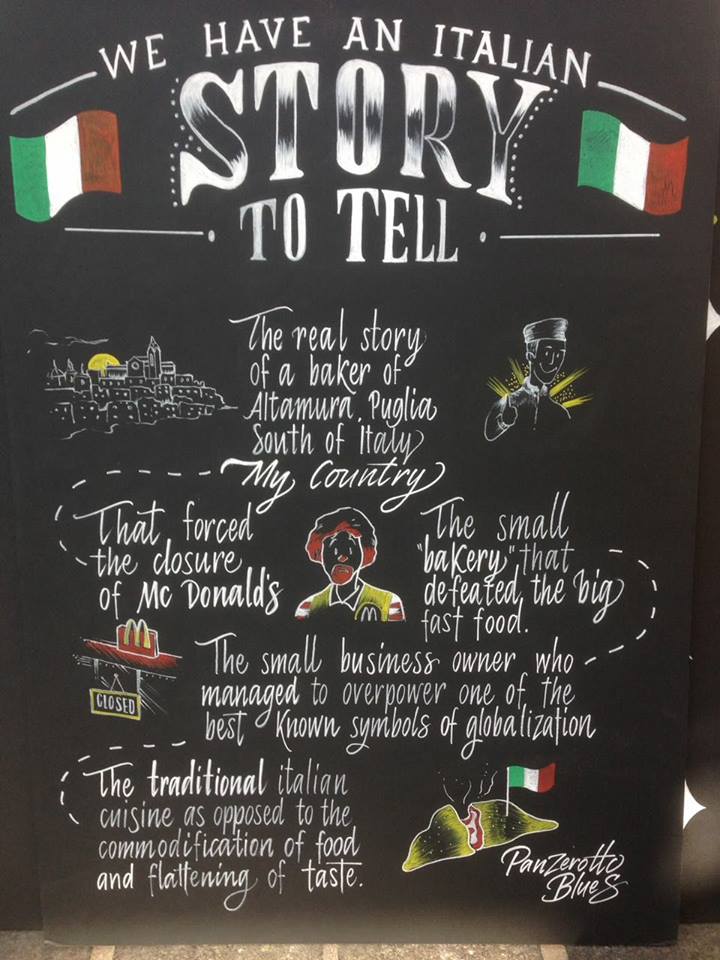 WE HAVE AN ITALIAN
STORY
TO TELL
The real story
of a baker of
Altamura, Puglia
South of Italy
My Country
That forced
the closure
of Mc Donald's
The small
"bakery" that
defeated, the big
fast food.
M
CLOSED
M
The small business owner who
managed to overpower one of the
best known symbols of globalization
The traditional italian
cuisine as opposed to the
commodification of food
and flattening of taste.
Panzerotto
Blues